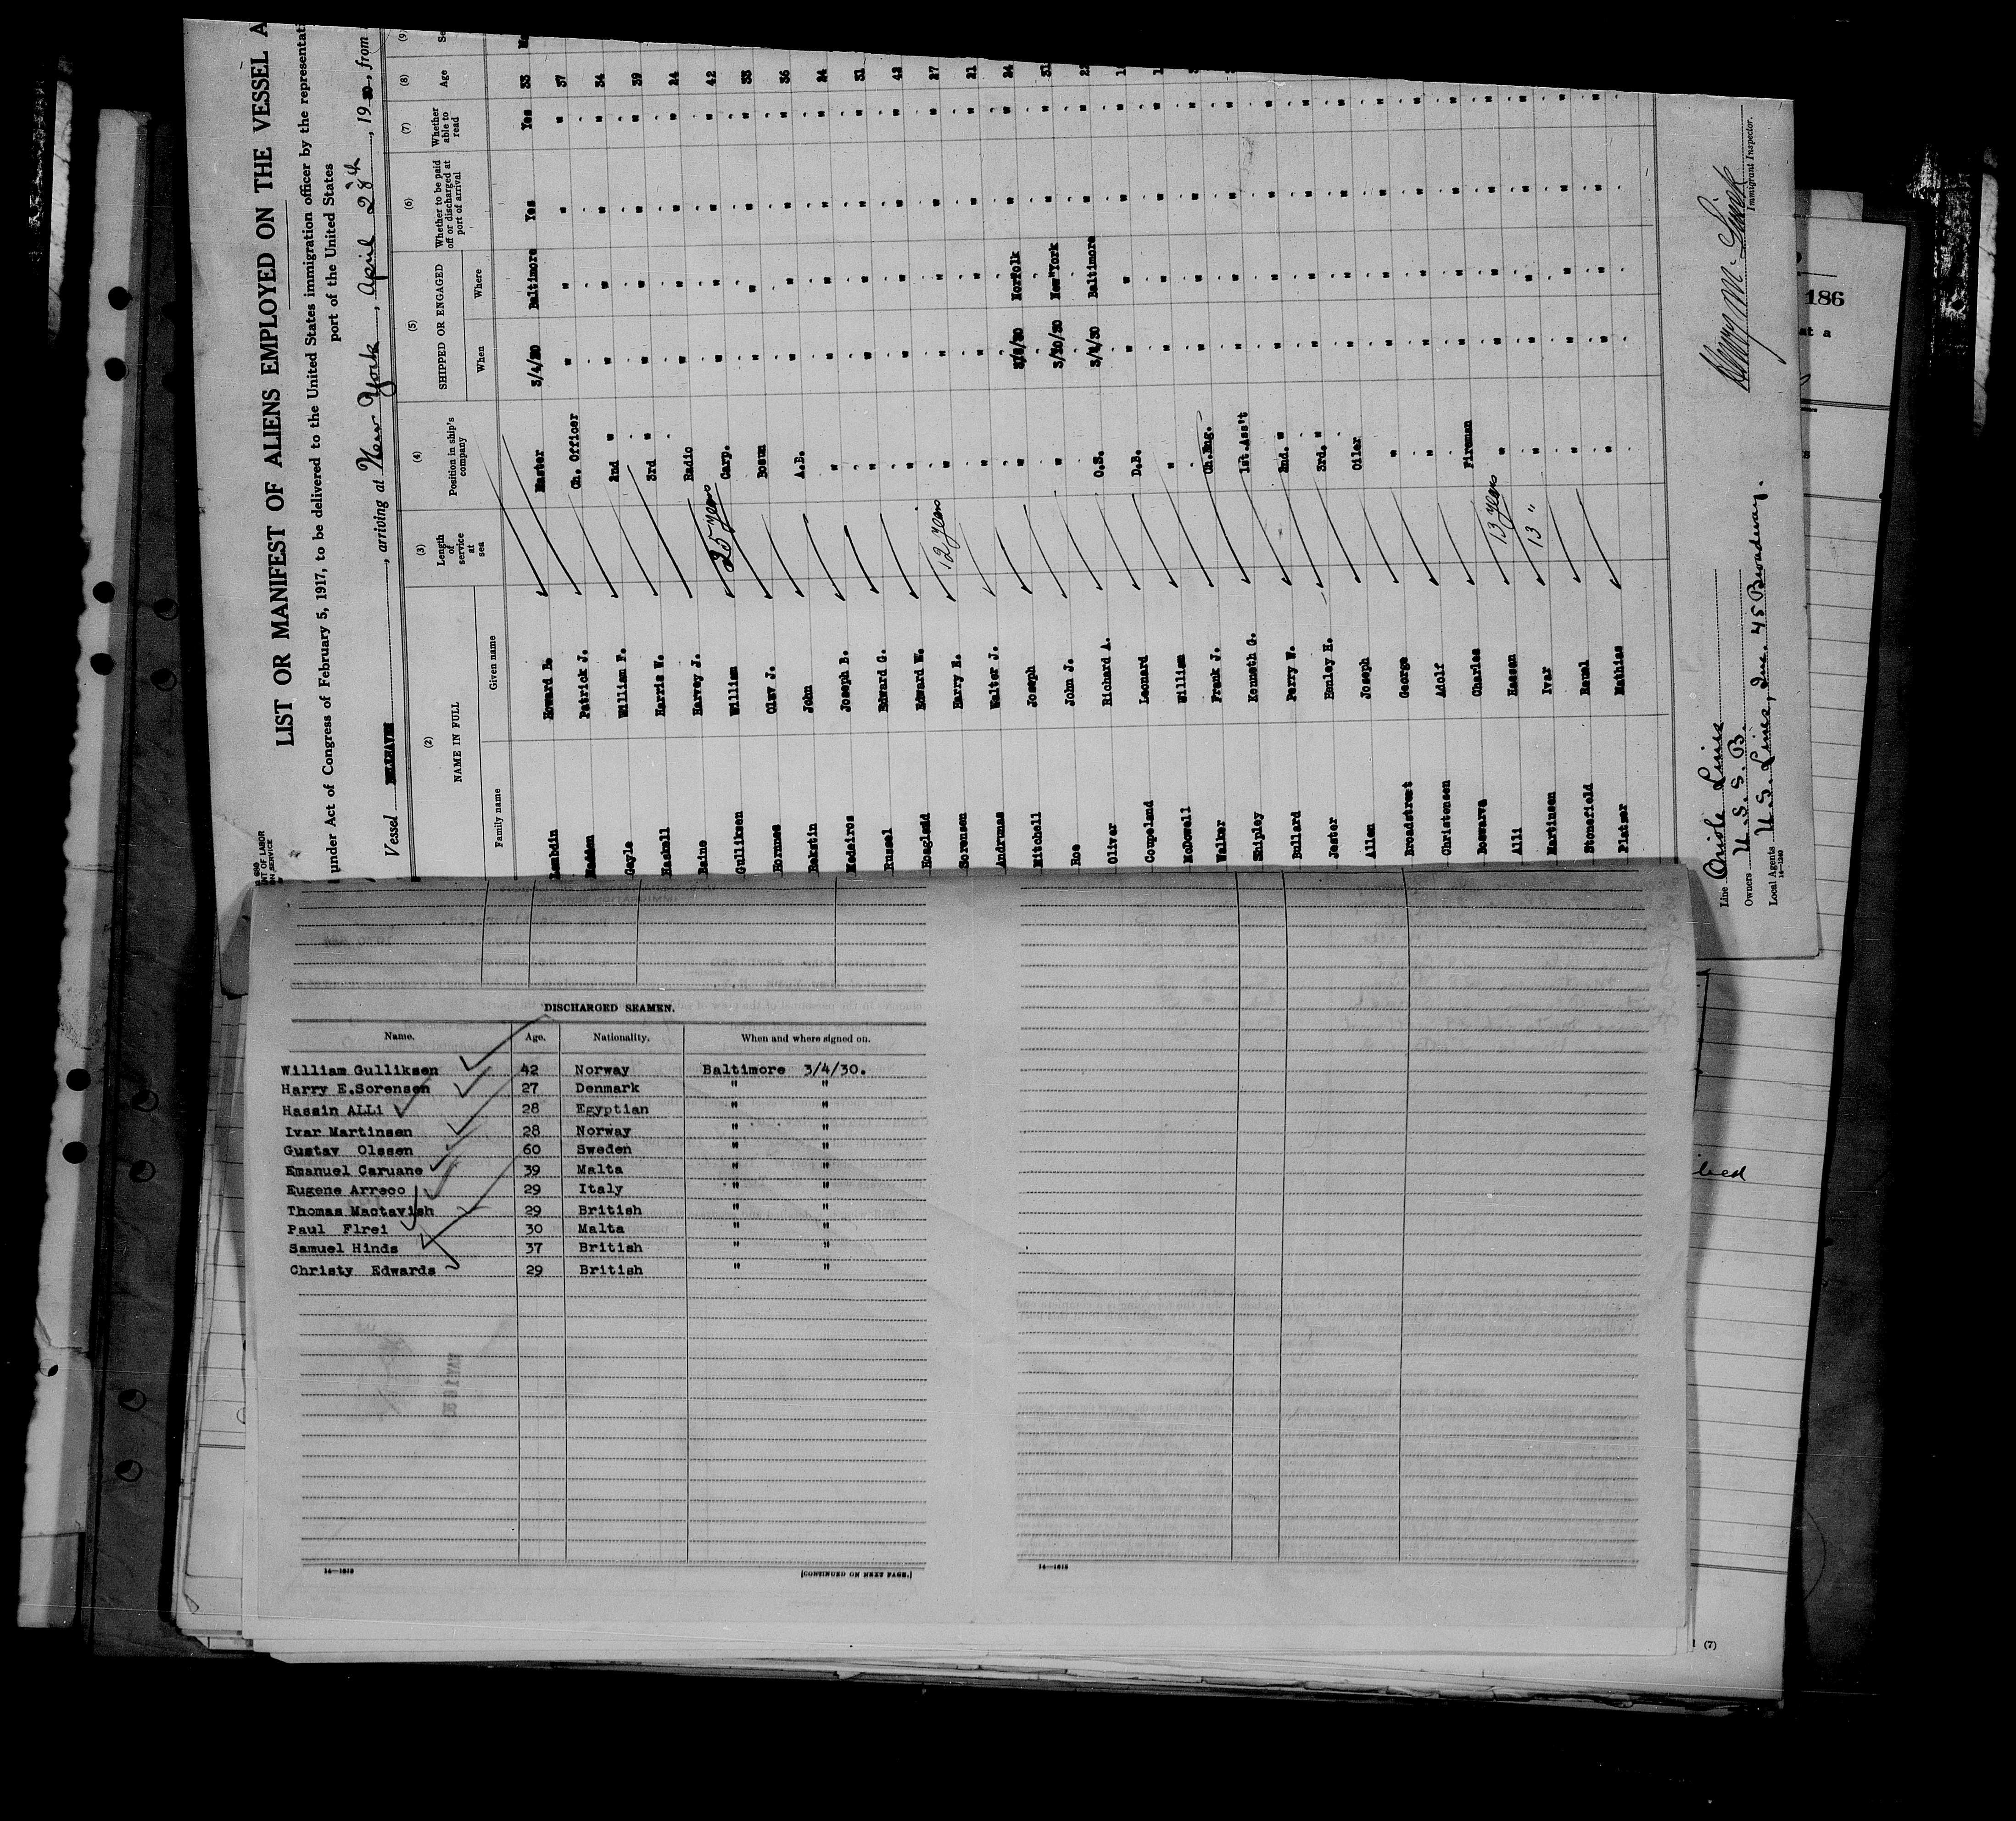 LIST OR MANIFEST OF ALIENS EMPLOYED ON THE VESSEL A
under Act of Congress of February 5, 1917, to be delivered to the United States immigration officer by the representati
port of the United States
Vessel BELLHAVEN, arriving at New York, April 28th, 1930, from
(2) (3) (4) (5) (6) (7) (8) (9)
NAME IN FULL Length of service at sea Position in ship's company SHIPPED OR ENGAGED Whether to be paid off or discharged at port of arrival Whether able to read Age Se
Family name Given name When Where
Lambdin Howard Master 3/4/30 Baltimore Yes Yes 33
Madden Patrick J. Ch. Officer " " " " 37
Gayle William F. 2nd " " " " " 34
Haskell Harris W. 3rd " " " " " 39
Raine Harvey J. Radio " " " " 24
Gulliksen William 25 years Carp. " " " " 42
Hornnes Olav J. Bosun " " " " 33
Bekstin John A.B. " " " " 36
Medeiros Joseph B. " " " " " 24
Russel Edward G. " " " " " 31
Hoagland Edward W. " " " " " 42
Sorensen Harry E. 12 years " " " " " 27
Andrunas Walter J. " " " " " 21
Mitchell Joseph " Norfolk " " 24
Roe John J. " 3/20/30 New York " " 31
Oliver Richard A. O.S. Baltimore " "
Coupeland Leonard D.B. " " " "
McDowell William " " " " "
Walker Frank J. Ch.Eng. " " " "
Shipley Kenneth G. 1st.Ass't " " " "
Bullard Perry W. 2nd. " " " " "
Jester Henley H. 3rd. " " " " "
Allen Joseph Oiler " " " "
Broadstreet George " " " " "
Christensen Adolf " " " " "
Boswarva Charles Fireman " " " "
Alli Hassan 13 years " " " " "
Martinsen Ivar 13 " " " " " "
Stonefield " " " " "
Platzer Mathias " " " " "
Line Oriole Lines
Owners U.S.S.B.
Local Agents U.S. Lines, Inc. 45 Broadway.
14—1240
Immigrant Inspector.
186
DISCHARGED SEAMEN.
Name. Age. Nationality. When and where signed on.
William Gulliksen 42 Norway Baltimore 3/4/30.
Harry E.Sorensen 27 Denmark " "
Hassin ALLi 28 Egyptian " "
Ivar Martinsen 28 Norway " "
Gustav Olssen 60 Sweden " "
Emanuel Caruane 39 Malta " "
Eugene Arreco 29 Italy " "
Thomas Mactavish 29 British " "
Paul Flrei 30 Malta " "
Samuel Hinds 37 British " "
Christy Edwards 29 British " "
14—1212
[CONTINUED ON NEXT PAGE.]
14—1212
(7)